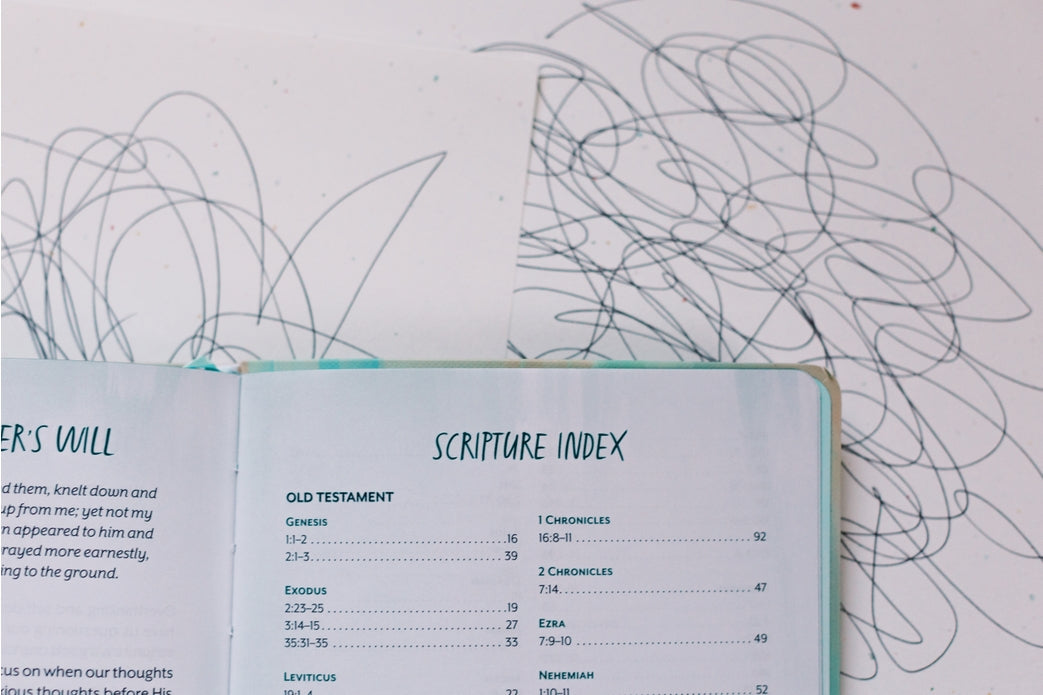 ER'S WILL
d them, knelt down and
up from me; yet not my
n appeared to him and
rayed more earnestly,
ing to the ground.
cus on when our thoughts
xious thoughts before His
SCRIPTURE INDEX
OLD TESTAMENT
GENESIS
1:1–2 ........................................ 16
2:1–3 ........................................ 39
EXODUS
2:23–25 ........................................ 19
3:14–15 ........................................ 27
35:31–35 ........................................ 33
LEVITICUS
19:1–4 ........................................ 22
1 CHRONICLES
16:8–11 ........................................ 92
2 CHRONICLES
7:14 ........................................ 47
EZRA
7:9–10 ........................................ 49
NEHEMIAH
1:10–11 ........................................ 52